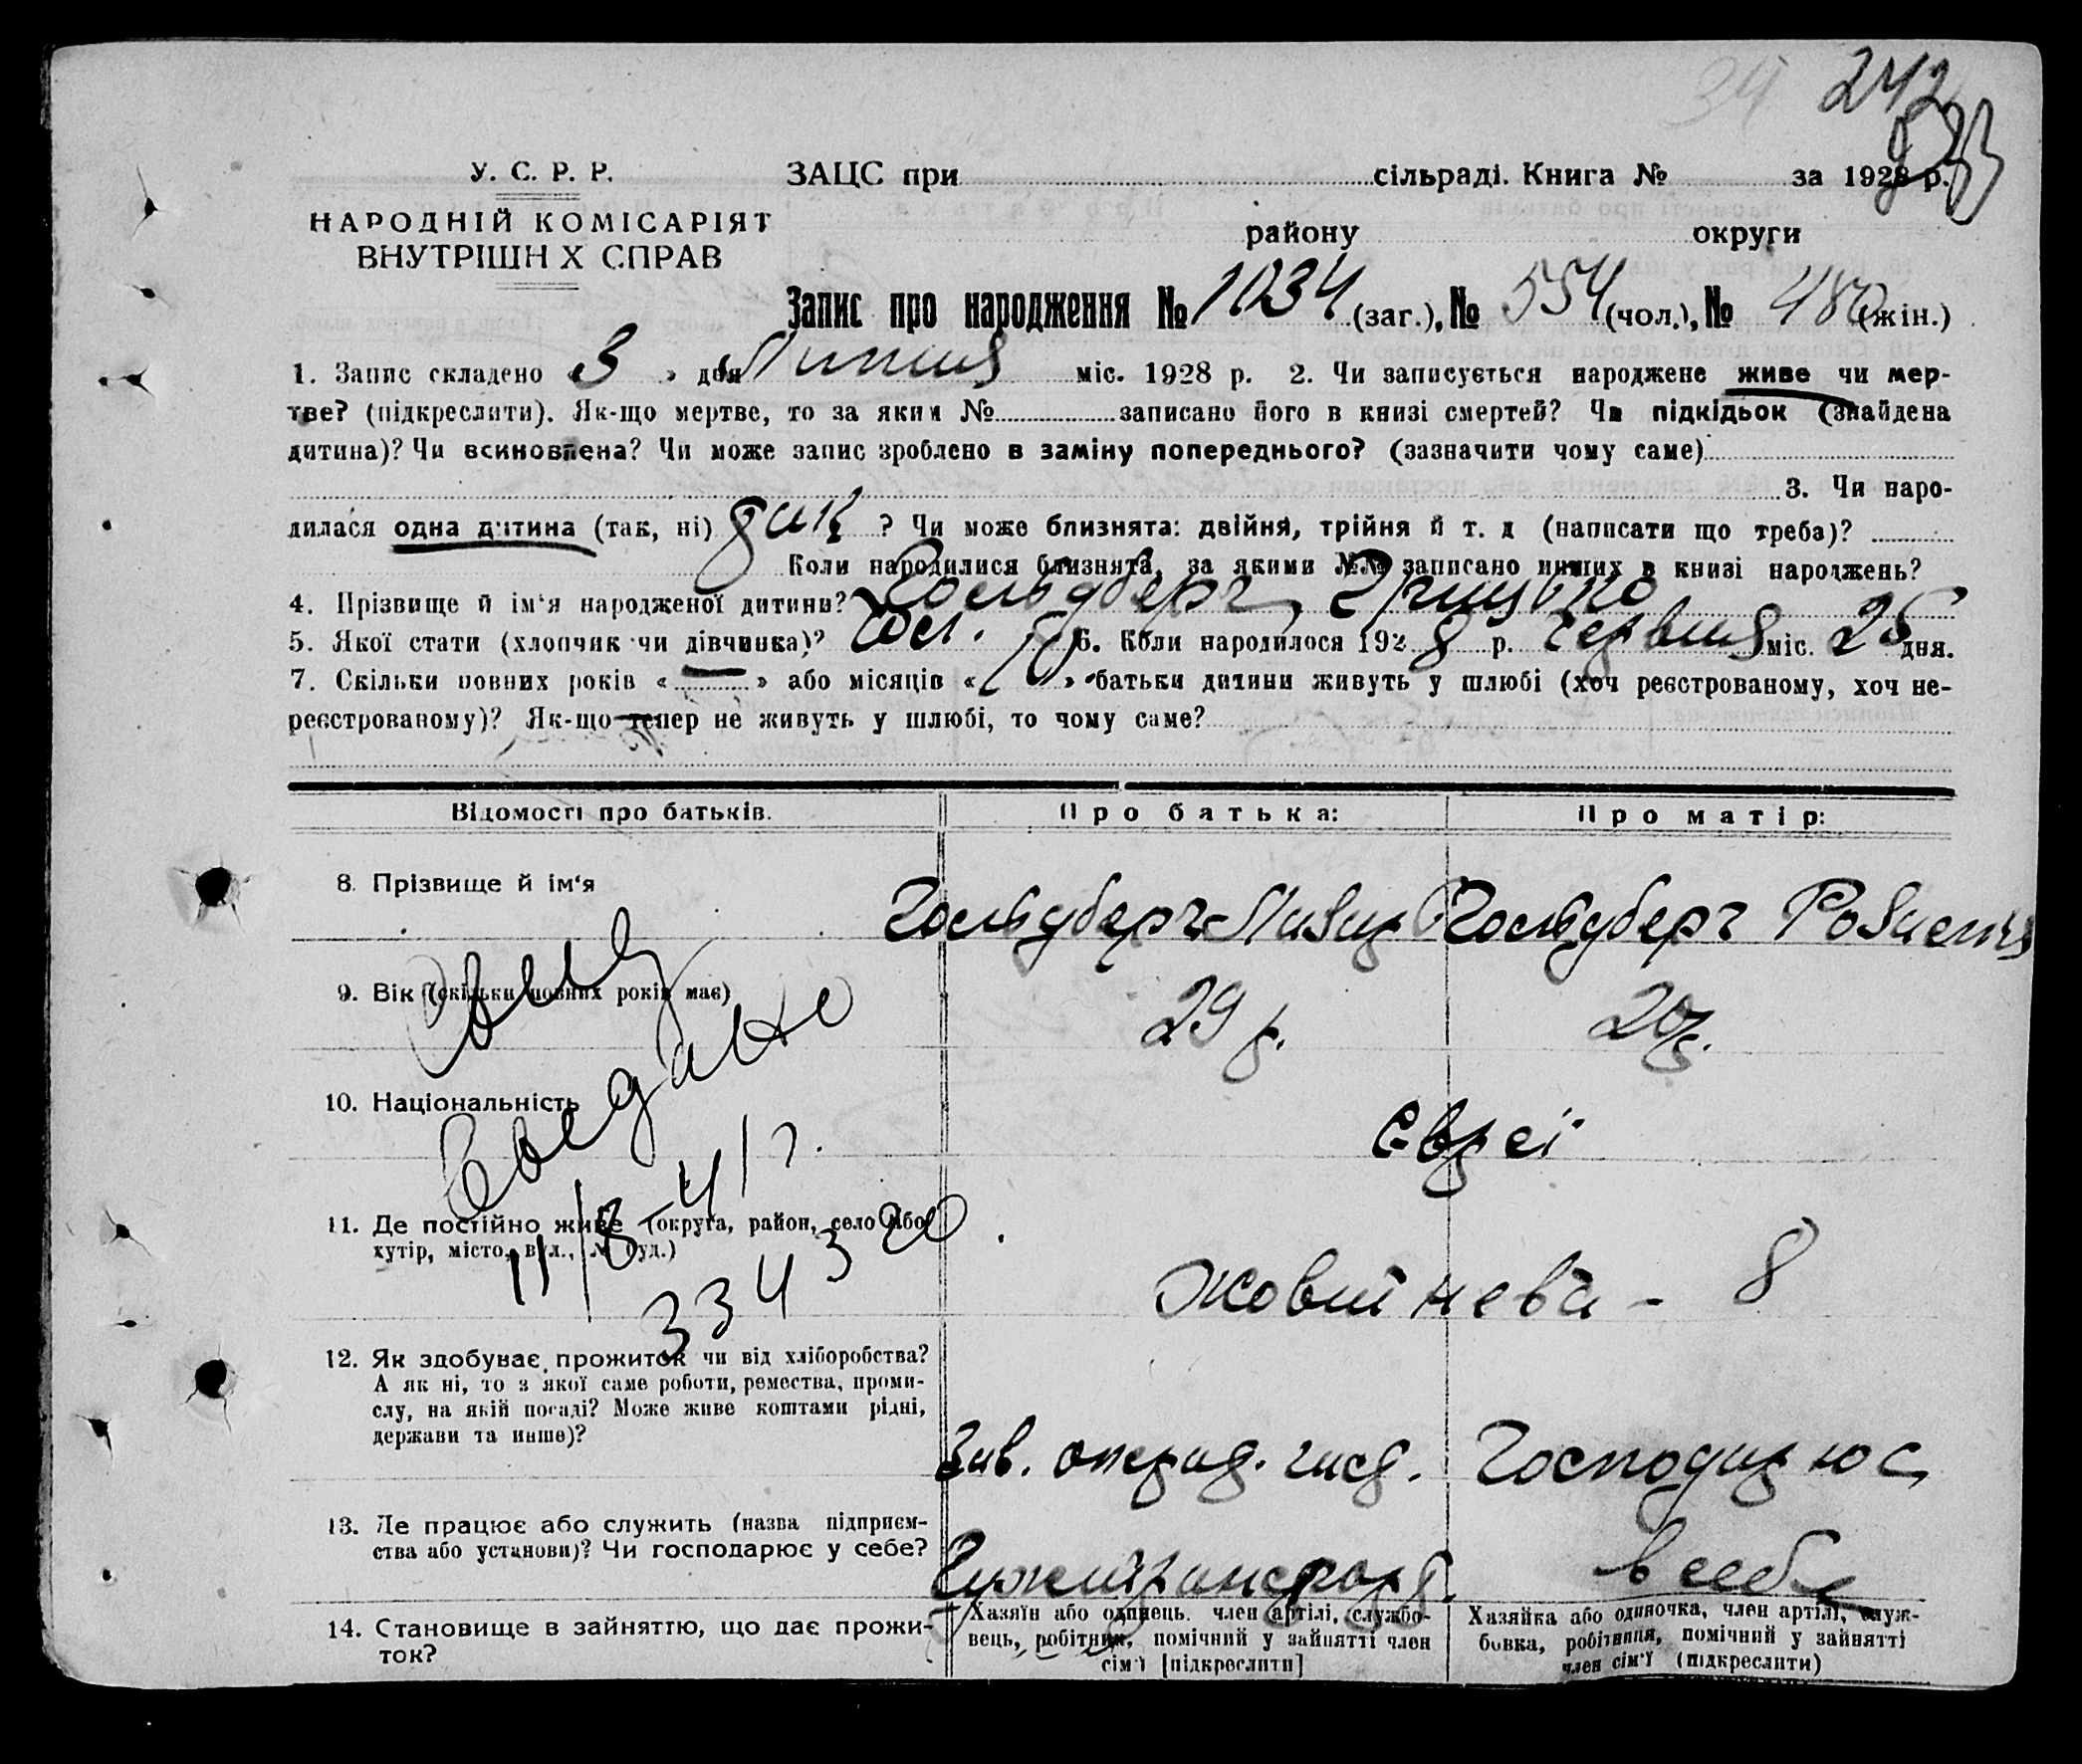 34 242
У. С. Р. Р.
ЗАЦС при сільраді. Книга № за 1928 р.
НАРОДНІЙ КОМІСАРІЯТ
ВНУТРІШН Х СПРАВ
району округи
Запис про народження № 1034 (заг.), № 554 (чол.), № 480 (жін.)
1. Запис складено « 3 » дня Липня міс. 1928 р. 2. Чи записується народжене живе чи мер-
тве? (підкреслити). Як-що мертве, то за яким № записано його в книзі смертей? Чи підкідьок (знайдена
дитина)? Чи всиновлена? Чи може запис зроблено в заміну попереднього? (зазначити чому саме)
3. Чи наро-
дилася одна дитина (так, ні) так ? Чи може близнята: двійня, трійня й т. д (написати що треба)?
Коли народилися близнята, за якими №№ записано инших в книзі народжень?
4. Прізвище й ім‘я народженої дитини? Гольдберг,
5. Якої стати (хлопчик чи дівчинка)? 6. Коли народилося 1928 р. Червня міс. 25 дня.
7. Скільки повних років « — » або місяців « 10 » батьки дитини живуть у шлюбі (хоч реєстрованому, хоч не-
реєстрованому)? Як-що тепер не живуть у шлюбі, то чому саме?
Відомості про батьків.
Про батька:
Про матір:
8. Прізвище й ім‘я
Гольдберг
Гольдберг
9. Вік (скільки повних років має)
29 р.
20 р.
10. Національність
Євреї
11/8–41 г.
11. Де постійно живе (округа, район, село або
хутір, місто, вул., № буд.)
334320
Жовтнева – 8
12. Як здобуває прожиток чи від хліборобства?
А як ні, то з якої саме роботи, ремества, проми-
слу, на якій посаді? Може живе коштами рідні,
держави та инше)?
Зав. операт. част.
Господарює
13. Де працює або служить (назва підприєм-
ства або установи)? Чи господарює у себе?
Гужтранспорт.
в себе
14. Становище в зайняттю, що дає прожи-
ток?
Хазяїн або одинець, член артілі, службо-
вець, робітник, помічний у зайнятті член
сім‘ї [підкреслити]
Хазяйка або одиночка, член артілі, служ-
бовка, робітниця, помічний у зайнятті
член сім‘ї (підкреслити)